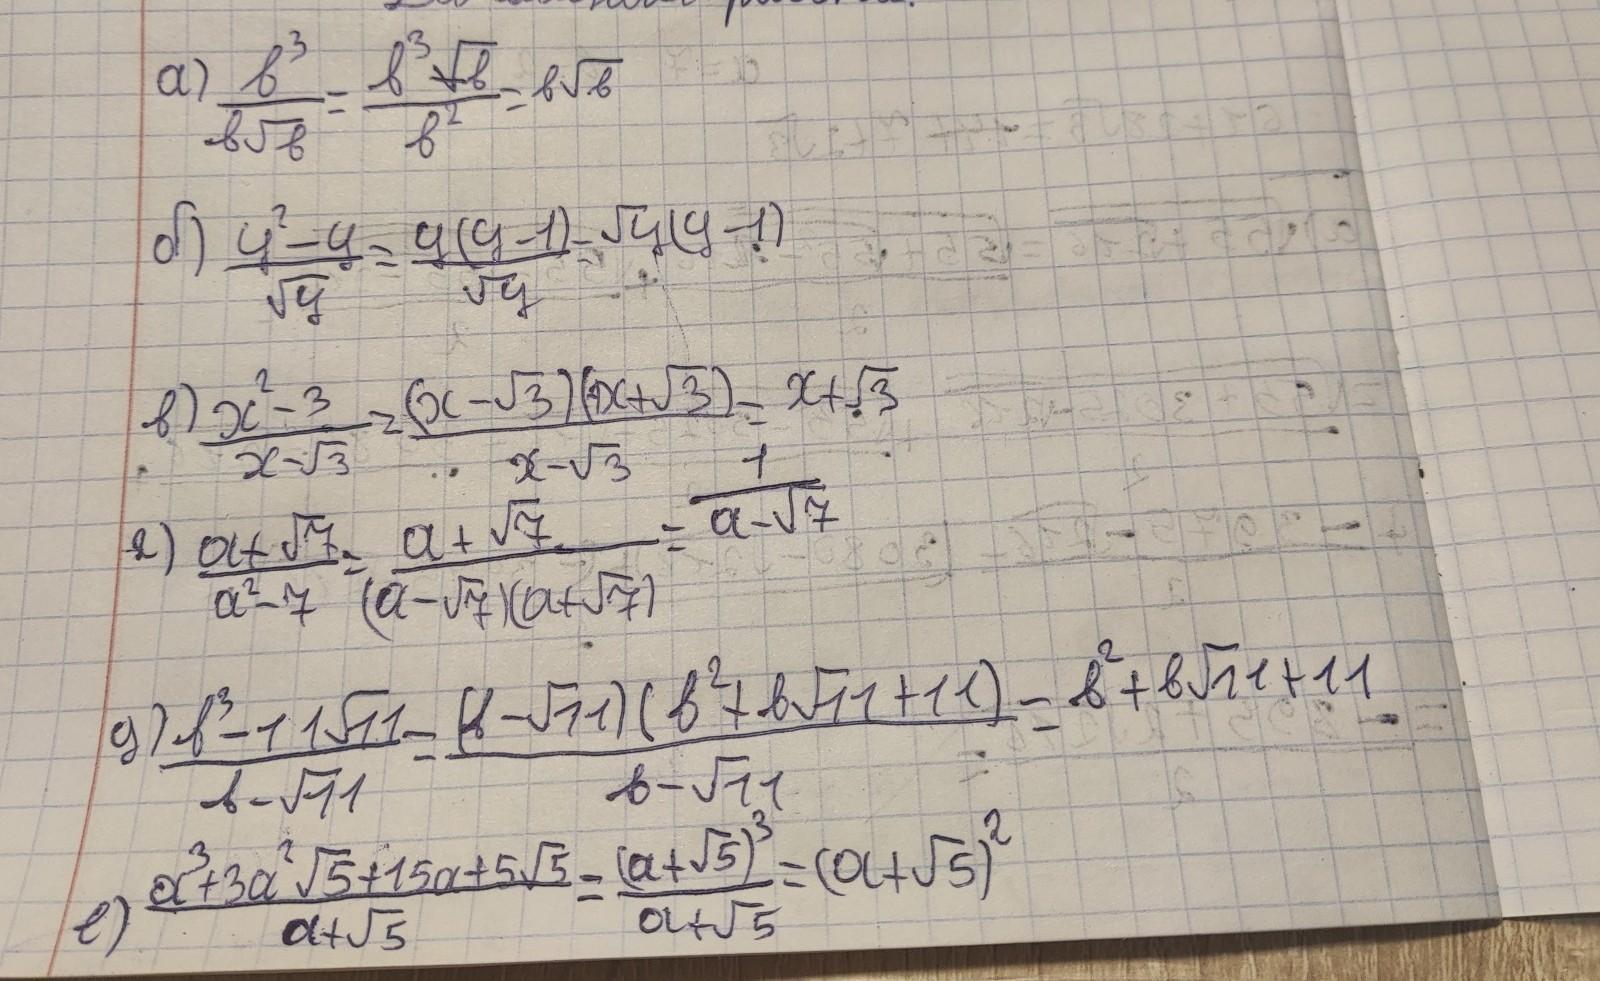 а) b³/(b√b) = b³√b/b² = b√b
б) (y²-y)/√y = y(y-1)/√y = √y(y-1)
в) (x²-3)/(x-√3) = (x-√3)(x+√3)/(x-√3) = x+√3
г) (a+√7)/(a²-7) = (a+√7)/((a-√7)(a+√7)) = 1/(a-√7)
д) (b³-11√11)/(b-√11) = (b-√11)(b²+b√11+11)/(b-√11) = b²+b√11+11
е) (a³+3a²√5+15a+5√5)/(a+√5) = (a+√5)³/(a+√5) = (a+√5)²